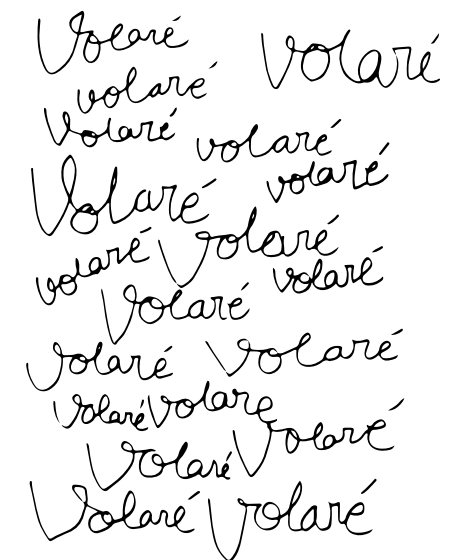 Volaré
Volaré
volaré
Volaré
volaré
Volaré
volaré
volaré
Volaré
volaré
Volaré
Volaré
Volaré
Volaré
Volaré
Volare
Volaré
Volaré
Volaré
Volaré